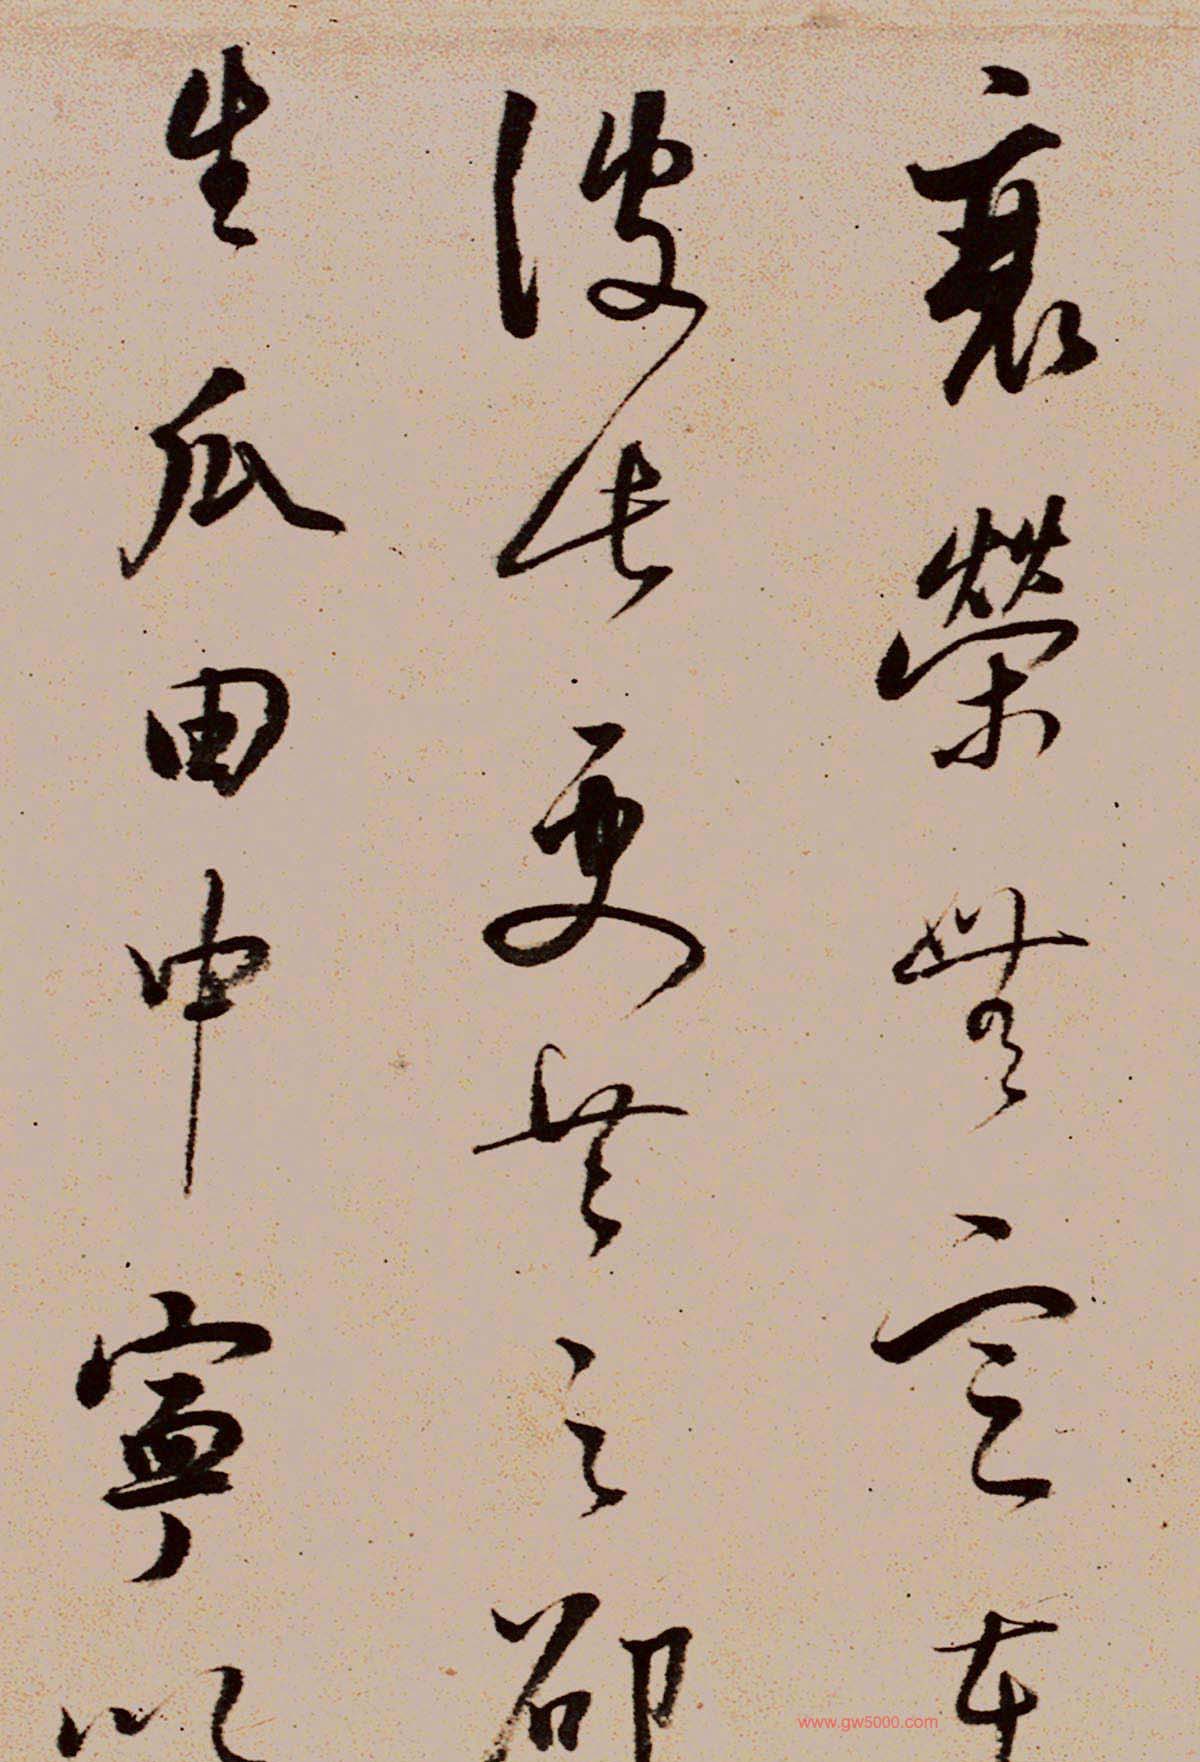 衰榮無定在
彼此更共之邵
生瓜田中寧似
www.gw5000.com